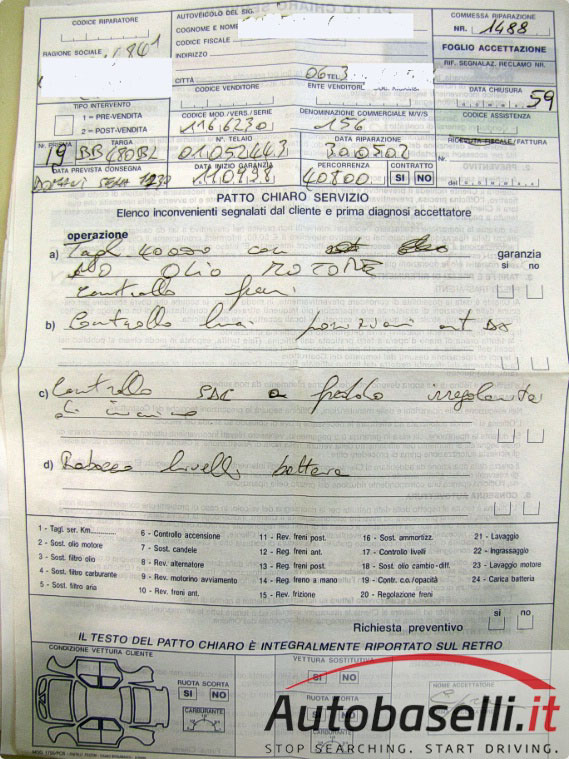 CODICE RIPARATORE
RAGIONE SOCIALE
AUTOVEICOLO DEL SIG.
COGNOME E NOME
CODICE FISCALE
INDIRIZZO
CITTÀ
06 TEL. 3
COMMESSA RIPARAZIONE
NR. 1488
FOGLIO ACCETTAZIONE
RIF. SEGNALAZ. RECLAMO NR.
TIPO INTERVENTO
1 = PRE-VENDITA
2 = POST-VENDITA
CODICE VENDITORE
ENTE VENDITORE
DATA CHIUSURA
59
CODICE MOD./VERS./SERIE
1166230
DENOMINAZIONE COMMERCIALE M/V/S
156
CODICE ASSISTENZA
19
TARGA
BB 480BL
N° TELAIO
01052443
DATA RIPARAZIONE
300502
RICEVUTA FISCALE/FATTURA
Nr.
DATA PREVISTA CONSEGNA
DOMANI SERA
DATA INIZIO GARANZIA
110998
PERCORRENZA
40800
CONTRATTO
SI NO
del
PATTO CHIARO SERVIZIO
Elenco inconvenienti segnalati dal cliente e prima diagnosi accettatore
operazione
garanzia
si no
a) Tagl. 40000 con
NO OLIO MOTORE
controllo freni
b) Controllo luci posizioni ant DX
c) Controllo pedale irregolarità
d) Rabbocco livelli batteria
1 - Tagl. ser. Km.
2 - Sost. olio motore
3 - Sost. filtro olio
4 - Sost. filtro carburante
5 - Sost. filtro aria
6 - Controllo accensione
7 - Sost. candele
8 - Rev. alternatore
9 - Rev. motorino avviamento
10 - Rev. freni ant.
11 - Rev. freni post.
12 - Reg. freni ant.
13 - Reg. freni post.
14 - Reg. freno a mano
15 - Rev. frizione
16 - Sost. ammortizz.
17 - Controllo livelli
18 - Sost. olio cambio-diff.
19 - Contr. c.o./opacità
20 - Regolazione freni
21 - Lavaggio
22 - Ingrassaggio
23 - Lavaggio motore
24 - Carica batteria
si no
Richiesta preventivo
IL TESTO DEL PATTO CHIARO È INTEGRALMENTE RIPORTATO SUL RETRO
CONDIZIONE VETTURA CLIENTE
RUOTA SCORTA
SI NO
CARBURANTE
VETTURA SOSTITUTIVA
RUOTA SCORTA
SI NO
CARBURANTE
NOME ACCETTATORE
Autobaselli.it
STOP SEARCHING. START DRIVING.